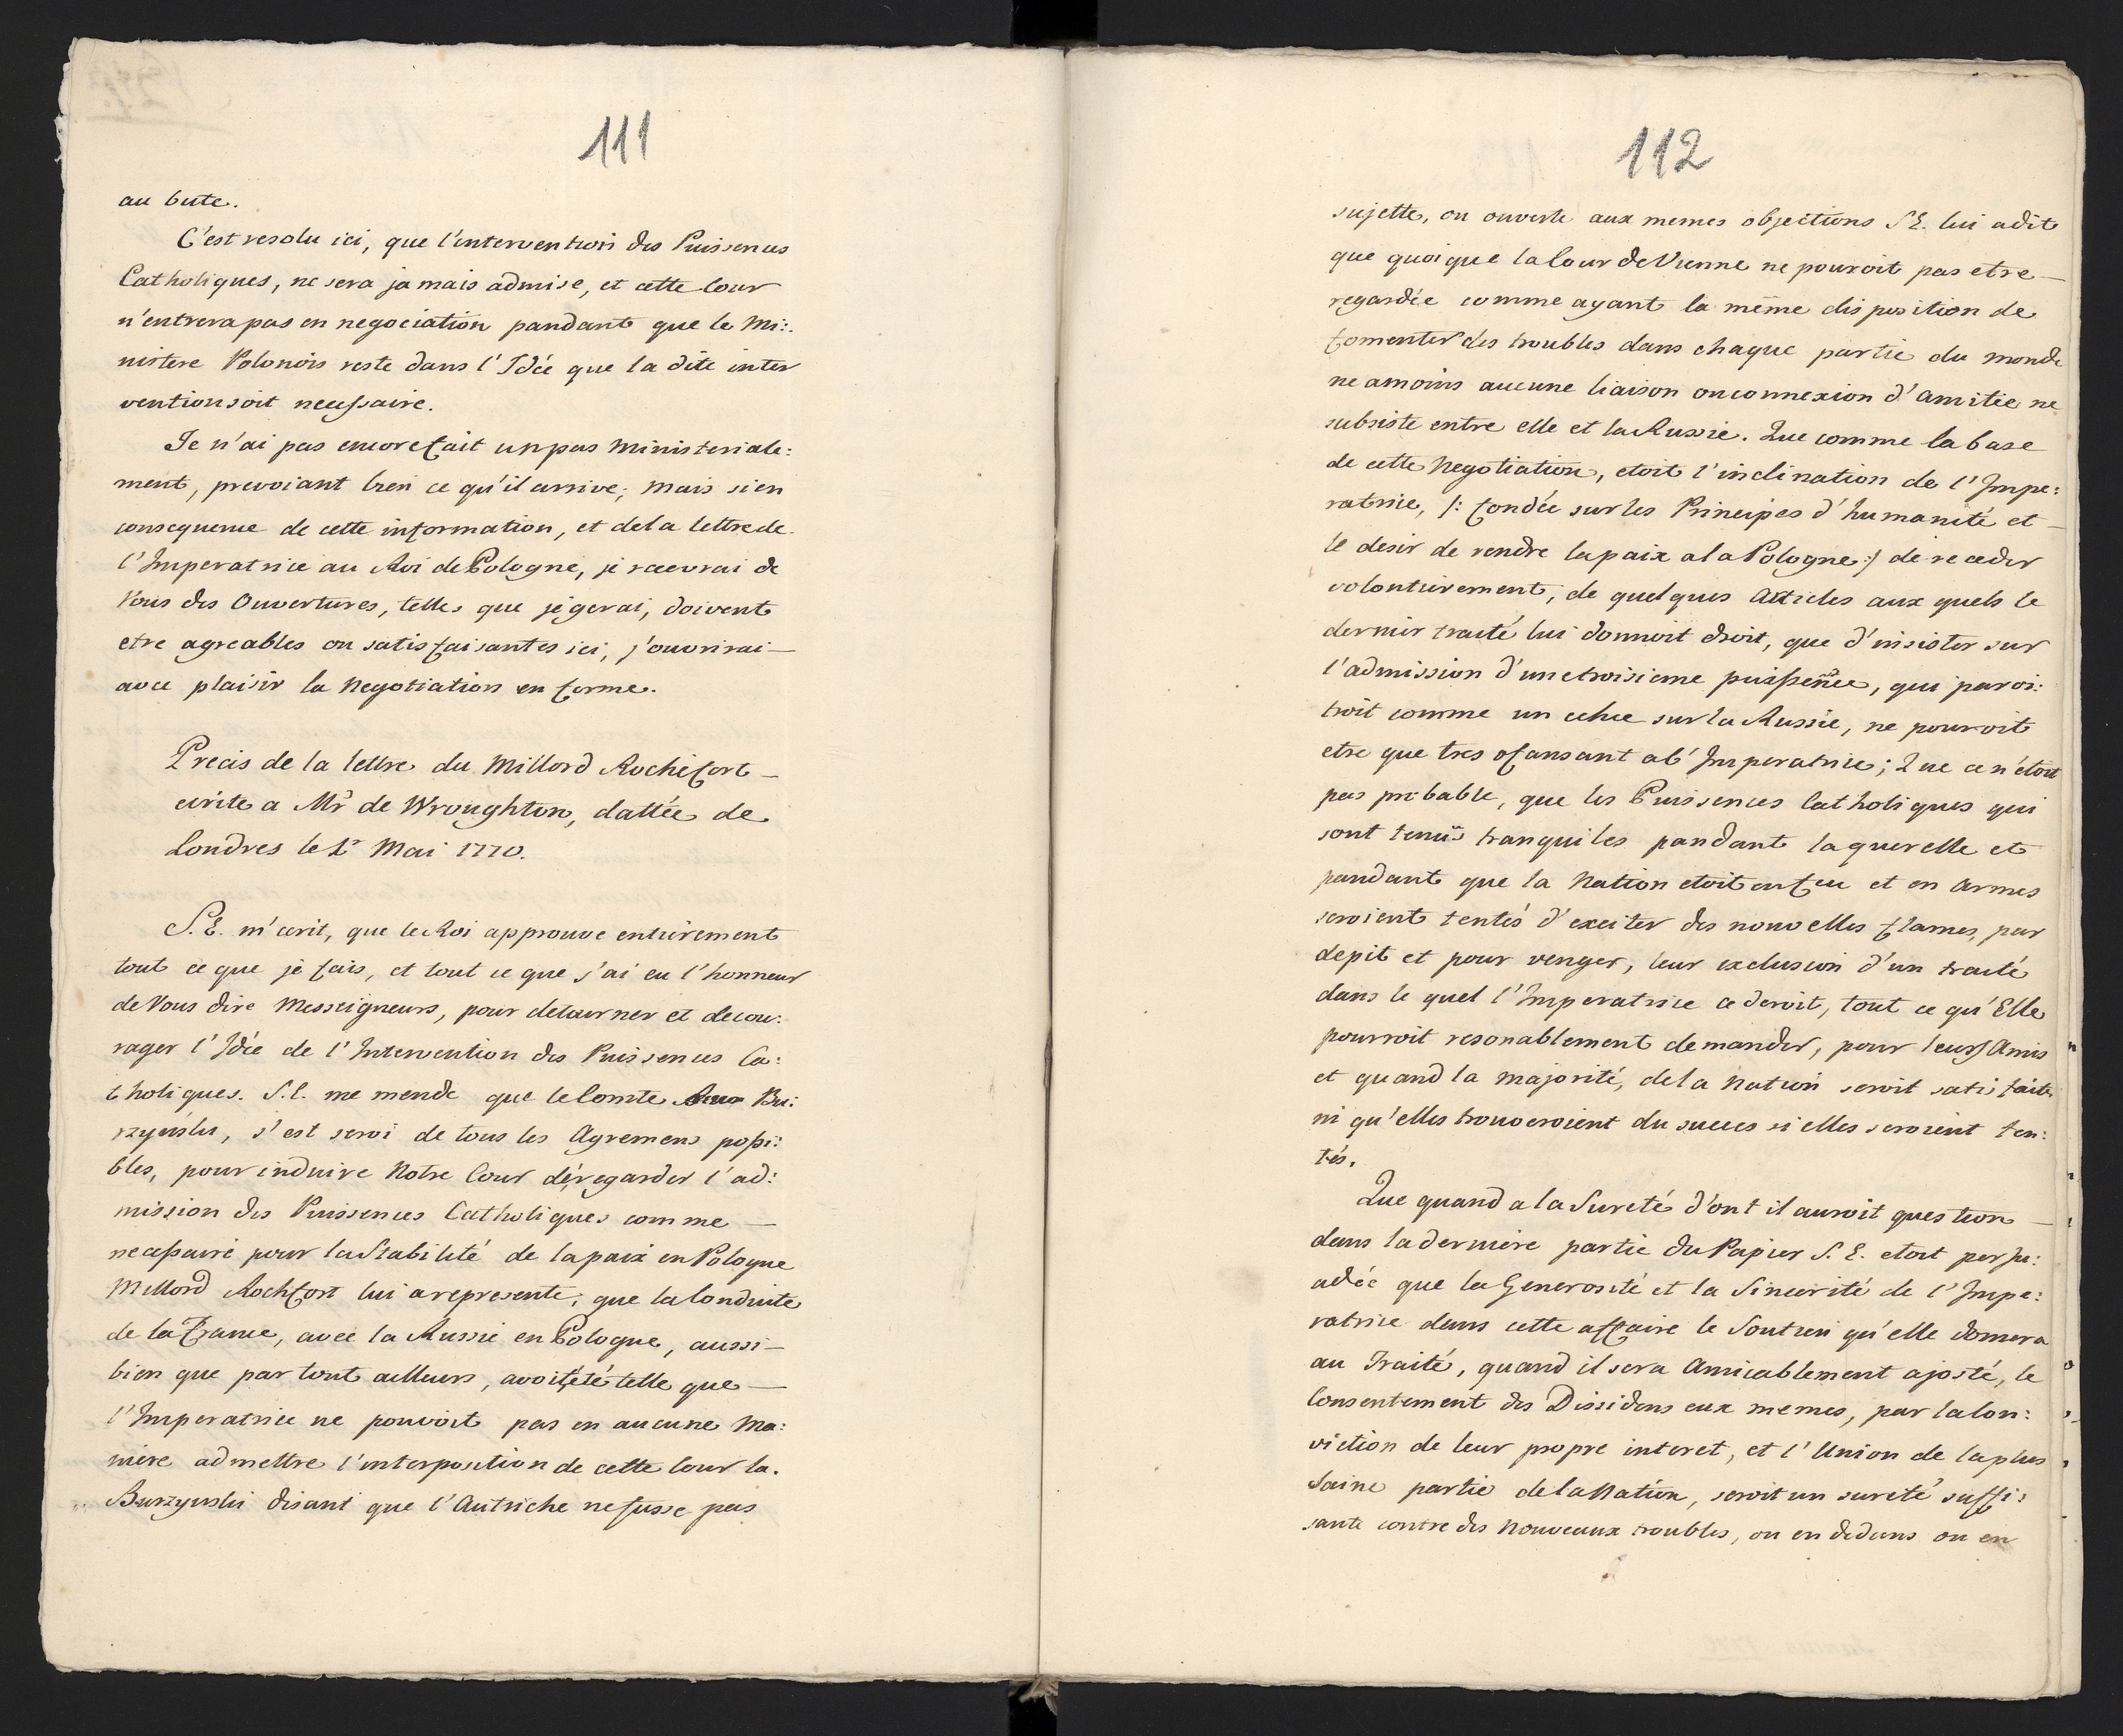 111
au bute.
C'est resolu ici, que l'intervention des Puissences
Catholiques, ne sera jamais admise, et cette Cour
n'entrera pas en negociation pandant que le Mi:
nistere Polonois reste dans l'Idée que la dite inter
vention soit necessaire.
Je n'ai pas encore fait un pas Ministeriale:
ment, prevoiant bien ce qu'il arrive; mais si en
consequence de cette information, et de la lettre de
l'Imperatrice au Roi de Pologne, je recevrai de
Vous des Ouvertures, telles que jégerai, doivent
etre agreables ou satisfaisantes ici, j'ouvrirai —
avec plaisir la Negotiation en forme.
Precis de la lettre du Millord Rochefort —
ecrite a Mr de Wroughton, dattée de
Londres le 1r Mai 1770.
S.E. m'ecrit, que le Roi approuve entierement
tout ce que je fais, et tout ce que j'ai eu l'honneur
de Vous dire Messeigneurs, pour detourner et decou:
rager l'Idée de l'Intervention des Puissences Ca:
tholiques. S.E. me mende que le Comte Bu:
rzynski, s'est servi de tous les Agremens possi:
bles, pour induire Notre Cour dé regarder l'ad:
mission des Puissences Catholiques comme —
necessaire pour la Stabilité de la paix en Pologne
Millord Rochfort lui a representé; que la Conduite
de la France, avec la Russie en Pologne, aussi —
bien que par tout ailleurs, avoit été telle que —
l'Imperatrice ne pouvoit pas en aucune Ma:
niere admettre l'interposition de cette Cour la.
Burzynski disant que l'Autriche ne fusse pas
112
sujette, ou ouverte aux memes objections S.E. lui a dit
que quoique la Cour de Vienne ne pouroit pas etre —
regardée comme ayant la même disposition de
fomenter des troubles dans chaque partie du monde
ne amoins aucune liaison ou connexion d'amitie ne
subsiste entre elle et la Russie. Que comme la base
de cette Negotiation, etoit l'inclination de l'Impe:
ratrice, /: fondée sur les Principes d'humanité et —
le desir de rendre la paix a la Pologne :/ de receder
volontierement, de quelques Articles aux quels le
dernier traité lui donnoit droit, que d'insister sur
l'admission d'une troisieme puissence, qui paroi:
troit comme un echec sur la Russie, ne pourroit
etre que tres ofansant a l'Imperatrice; Que ce n'étoit
pas probable, que les Puissences Catholiques qui
sont tenus tranquiles pandant la querelle et
pandant que la Nation etoit en feu et en Armes
seroient tentés d'exciter des nouvelles flames, par
depit et pour venger, leur exclusion d'un traité
dans le quel l'Imperatrice cederoit, tout ce qu'Elle
pourroit resonablement demander, pour leurs Amis
et quand la majorité, de la Nation seroit satisfaite
ni qu'elles trouveroient du succes si elles seroient ten:
tés.
Que quand a la Sureté d'ont il auroit question —
dans la derniere partie du Papier S.E. etoit persu:
adée que la Generosité et la Sincerité de l'Impe:
ratrice dans cette affaire le Soutien qu'elle donnera
au Traité, quand il sera Amicablement ajosté, le
Consentement des Dissidens eux memes, par la Con:
viction de leur propre interet, et l'Union de la plus
Saine partie de la Nation, seroit un sureté suffi:
sante contre des Nouveaux troubles, ou en dedans ou en